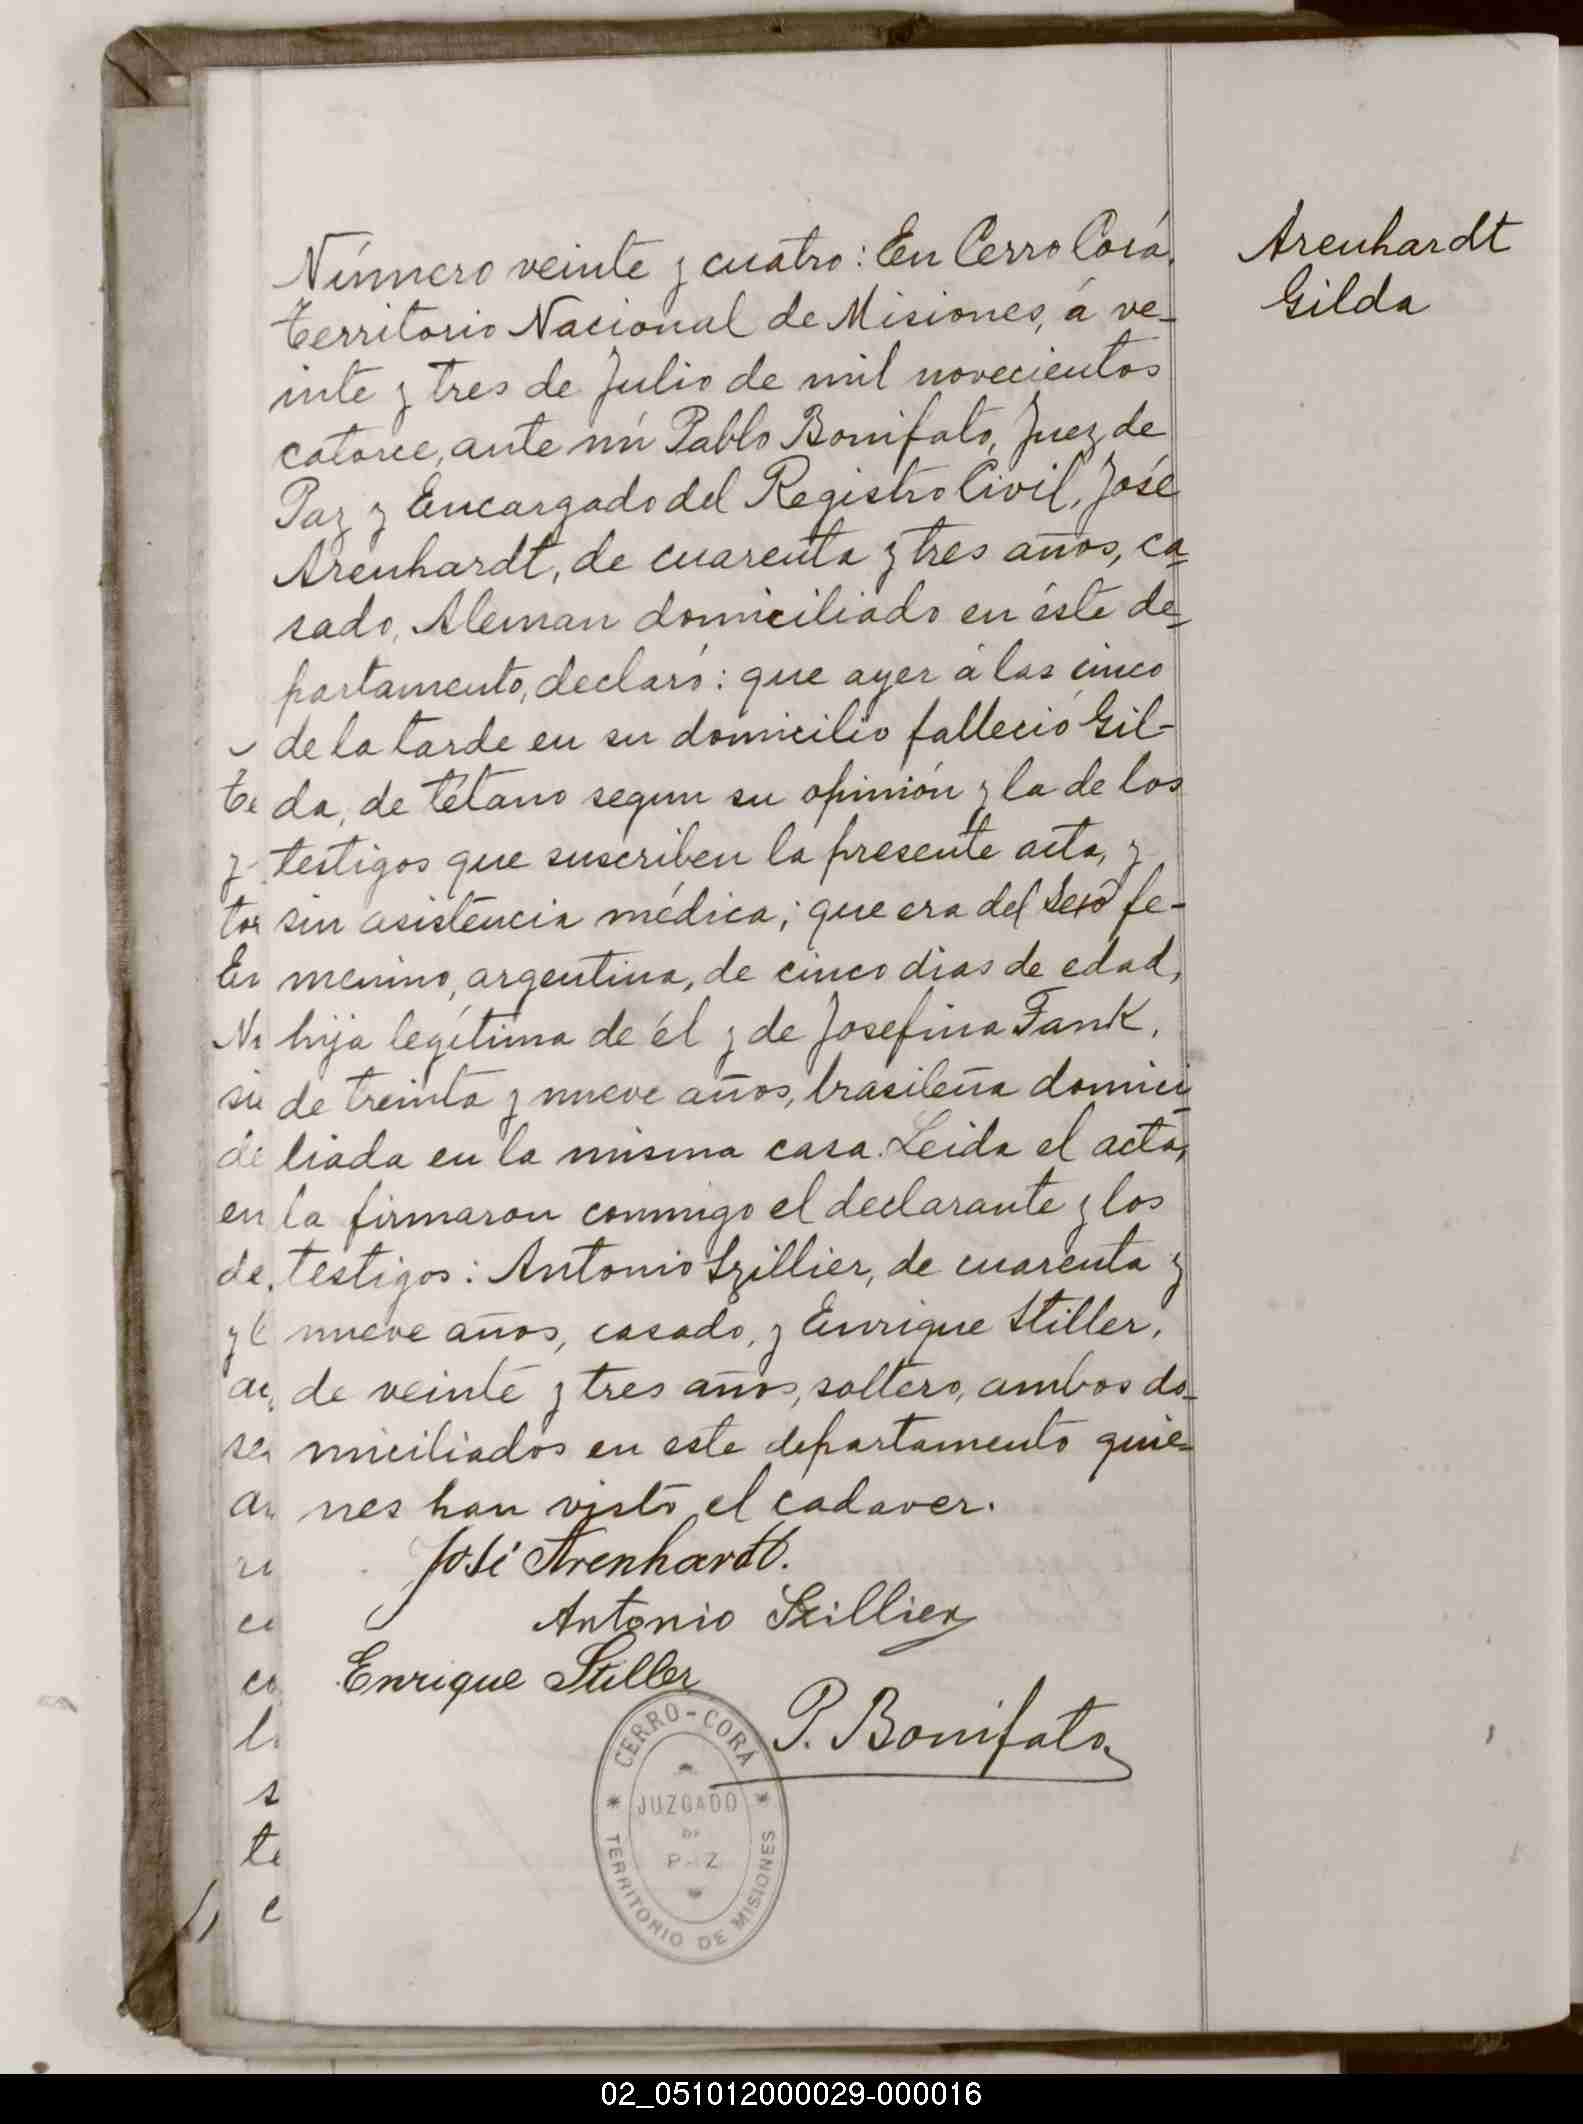 Arenhardt
Gilda
Número veinte y cuatro: En Cerro Corá,
territorio Nacional de Misiones, á ve-
inte y tres de Julio de mil novecientos
catorce, ante mi Pablo Bonifato, Juez de
Paz y Encargado del Registro Civil, José
Arenhardt, de cuarenta y tres años, ca-
sado, Aleman domiciliado en éste de-
partamento, declaró: que ayer á las cinco
de la tarde en su domicilio falleció Gil-
da, de tétano segun su opinión y la de los
testigos que suscriben la presente acta, y
sin asistencia médica; que era del sexo fe-
menino, argentina, de cinco dias de edad,
hija legítima de él y de Josefina Fank,
de treinta y nueve años, brasileña domici
liada en la misma casa. Leida el acta,
la firmaron conmigo el declarante y los
testigos: Antonio Szillier, de cuarenta y
nueve años, casado, y Enrique Stiller,
de veinte y tres años, soltero, ambos do-
miciliados en este departamento quie-
nes han visto el cadaver.
José Arenhardt.
Antonio Szillier
Enrique Stiller
P. Bonifato
CERRO-CORÁ
JUZGADO
DE
PAZ
TERRITORIO DE MISIONES
02_051012000029-000016